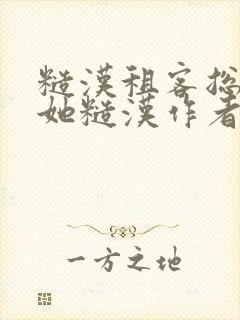 糙漢租客捻
她糙漢作者
一方之地